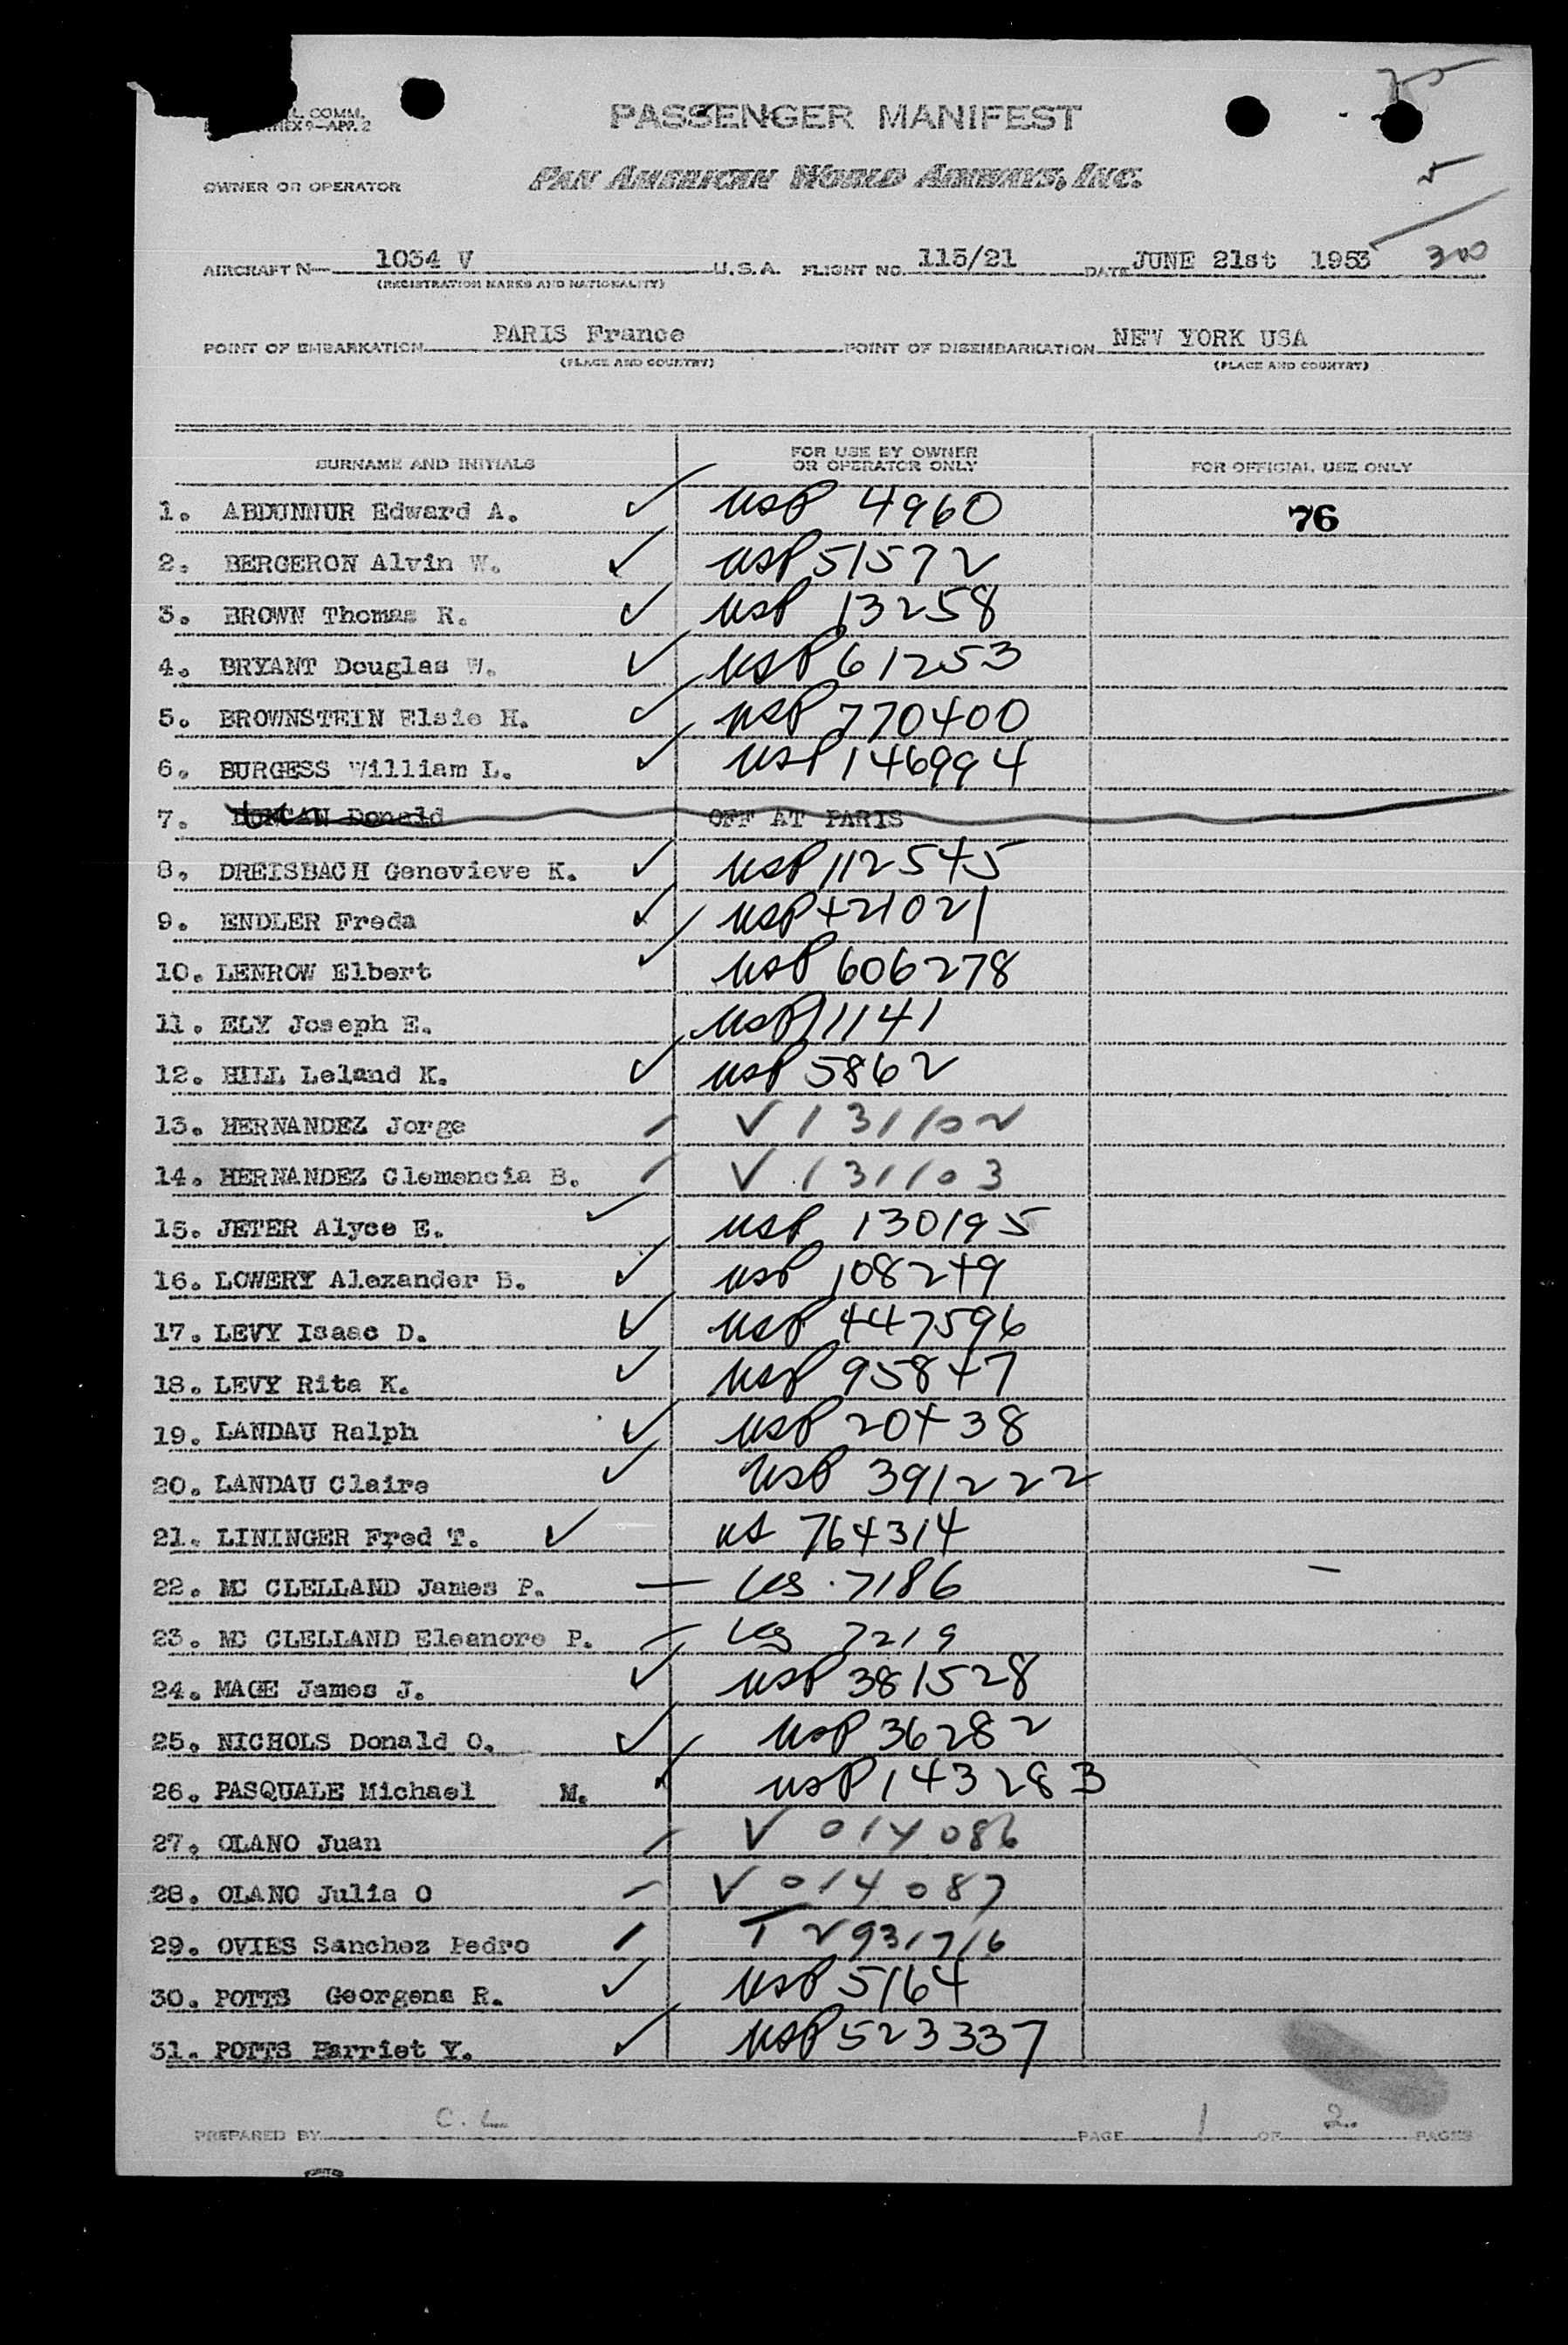 L. COMM.
ANNEX 9—APP. 2
PASSENGER MANIFEST
OWNER OR OPERATOR PAN AMERICAN WORLD AIRWAYS, INC.
AIRCRAFT N— 1034 V U.S.A. FLIGHT NO. 115/21 DATE JUNE 21st 1953 300
(REGISTRATION MARKS AND NATIONALITY)
POINT OF EMBARKATION PARIS France POINT OF DISEMBARKATION NEW YORK USA
(PLACE AND COUNTRY) (PLACE AND COUNTRY)
SURNAME AND INITIALS FOR USE BY OWNER OR OPERATOR ONLY FOR OFFICIAL USE ONLY
1. ABDUNNUR Edward A. ✓ USP 4960 76
2. BERGERON Alvin W. ✓ USP 51572
3. BROWN Thomas R. ✓ USP 13258
4. BRYANT Douglas W. ✓ USP 61253
5. BROWNSTEIN Elsie H. ✓ USP 770400
6. BURGESS William L. ✓ USP 146994
7. DUNCAN Donald OFF AT PARIS
8. DREISBACH Genevieve K. ✓ USP 112545
9. ENDLER Freda ✓ USP 421021
10. LENROW Elbert ✓ USP 606278
11. ELY Joseph E. USP 11141
12. HILL Leland K. ✓ USP 5862
13. HERNANDEZ Jorge V 131102
14. HERNANDEZ Clemencia B. V 131103
15. JETER Alyce E. ✓ USP 130195
16. LOWERY Alexander B. ✓ USP 108249
17. LEVY Isaac D. ✓ USP 447596
18. LEVY Rita K. ✓ USP 95847
19. LANDAU Ralph ✓ USP 20438
20. LANDAU Claire ✓ USP 391222
21. LININGER Fred T. ✓ US 764314
22. MC CLELLAND James P. — US 7186 —
23. MC CLELLAND Eleanore P. — US 7219
24. MAGE James J. ✓ USP 381528
25. NICHOLS Donald O. ✓ USP 36282
26. PASQUALE Michael M. ✓ USP 143283
27. OLANO Juan V 014086
28. OLANO Julia O V 014087
29. OVIES Sanchez Pedro T 2931716
30. POTTS Georgena R. ✓ USP 5164
31. POTTS Harriet Y. ✓ USP 523337
PREPARED BY C. L. PAGE 1 OF 2 PAGES